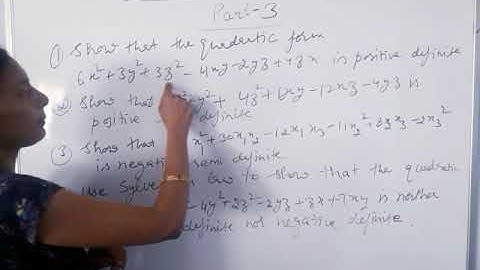 Part-3
① Show that the quadratic form
6x² + 3y² + 3z² - 4xy - 2yz + 4zx is positive definite
② Show that y² + 4z² + 6xy - 12xz - 4yz is
positive definite
③ Show that x² + 30x₁x₂ - 12x₁x₃ - 11x₂² + 8x₃x₂ - 2x₃²
is negative semi definite
Use law to show that the quadratic
- 4y² + 2z² - 2yz + 3x + 7xy is neither
definite not negative definite.